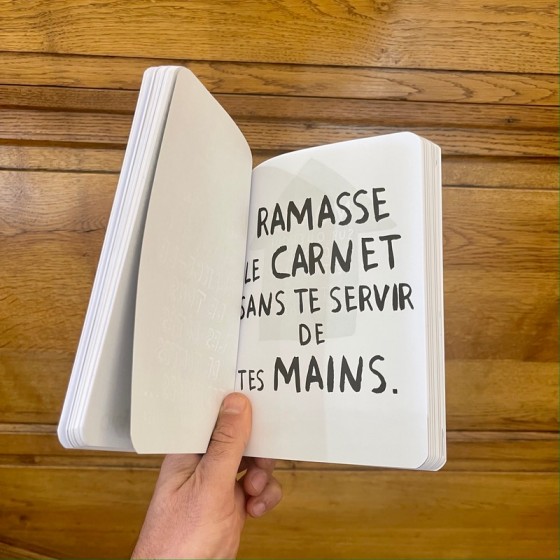 RAMASSE
LE CARNET
SANS TE SERVIR
DE
TES MAINS.